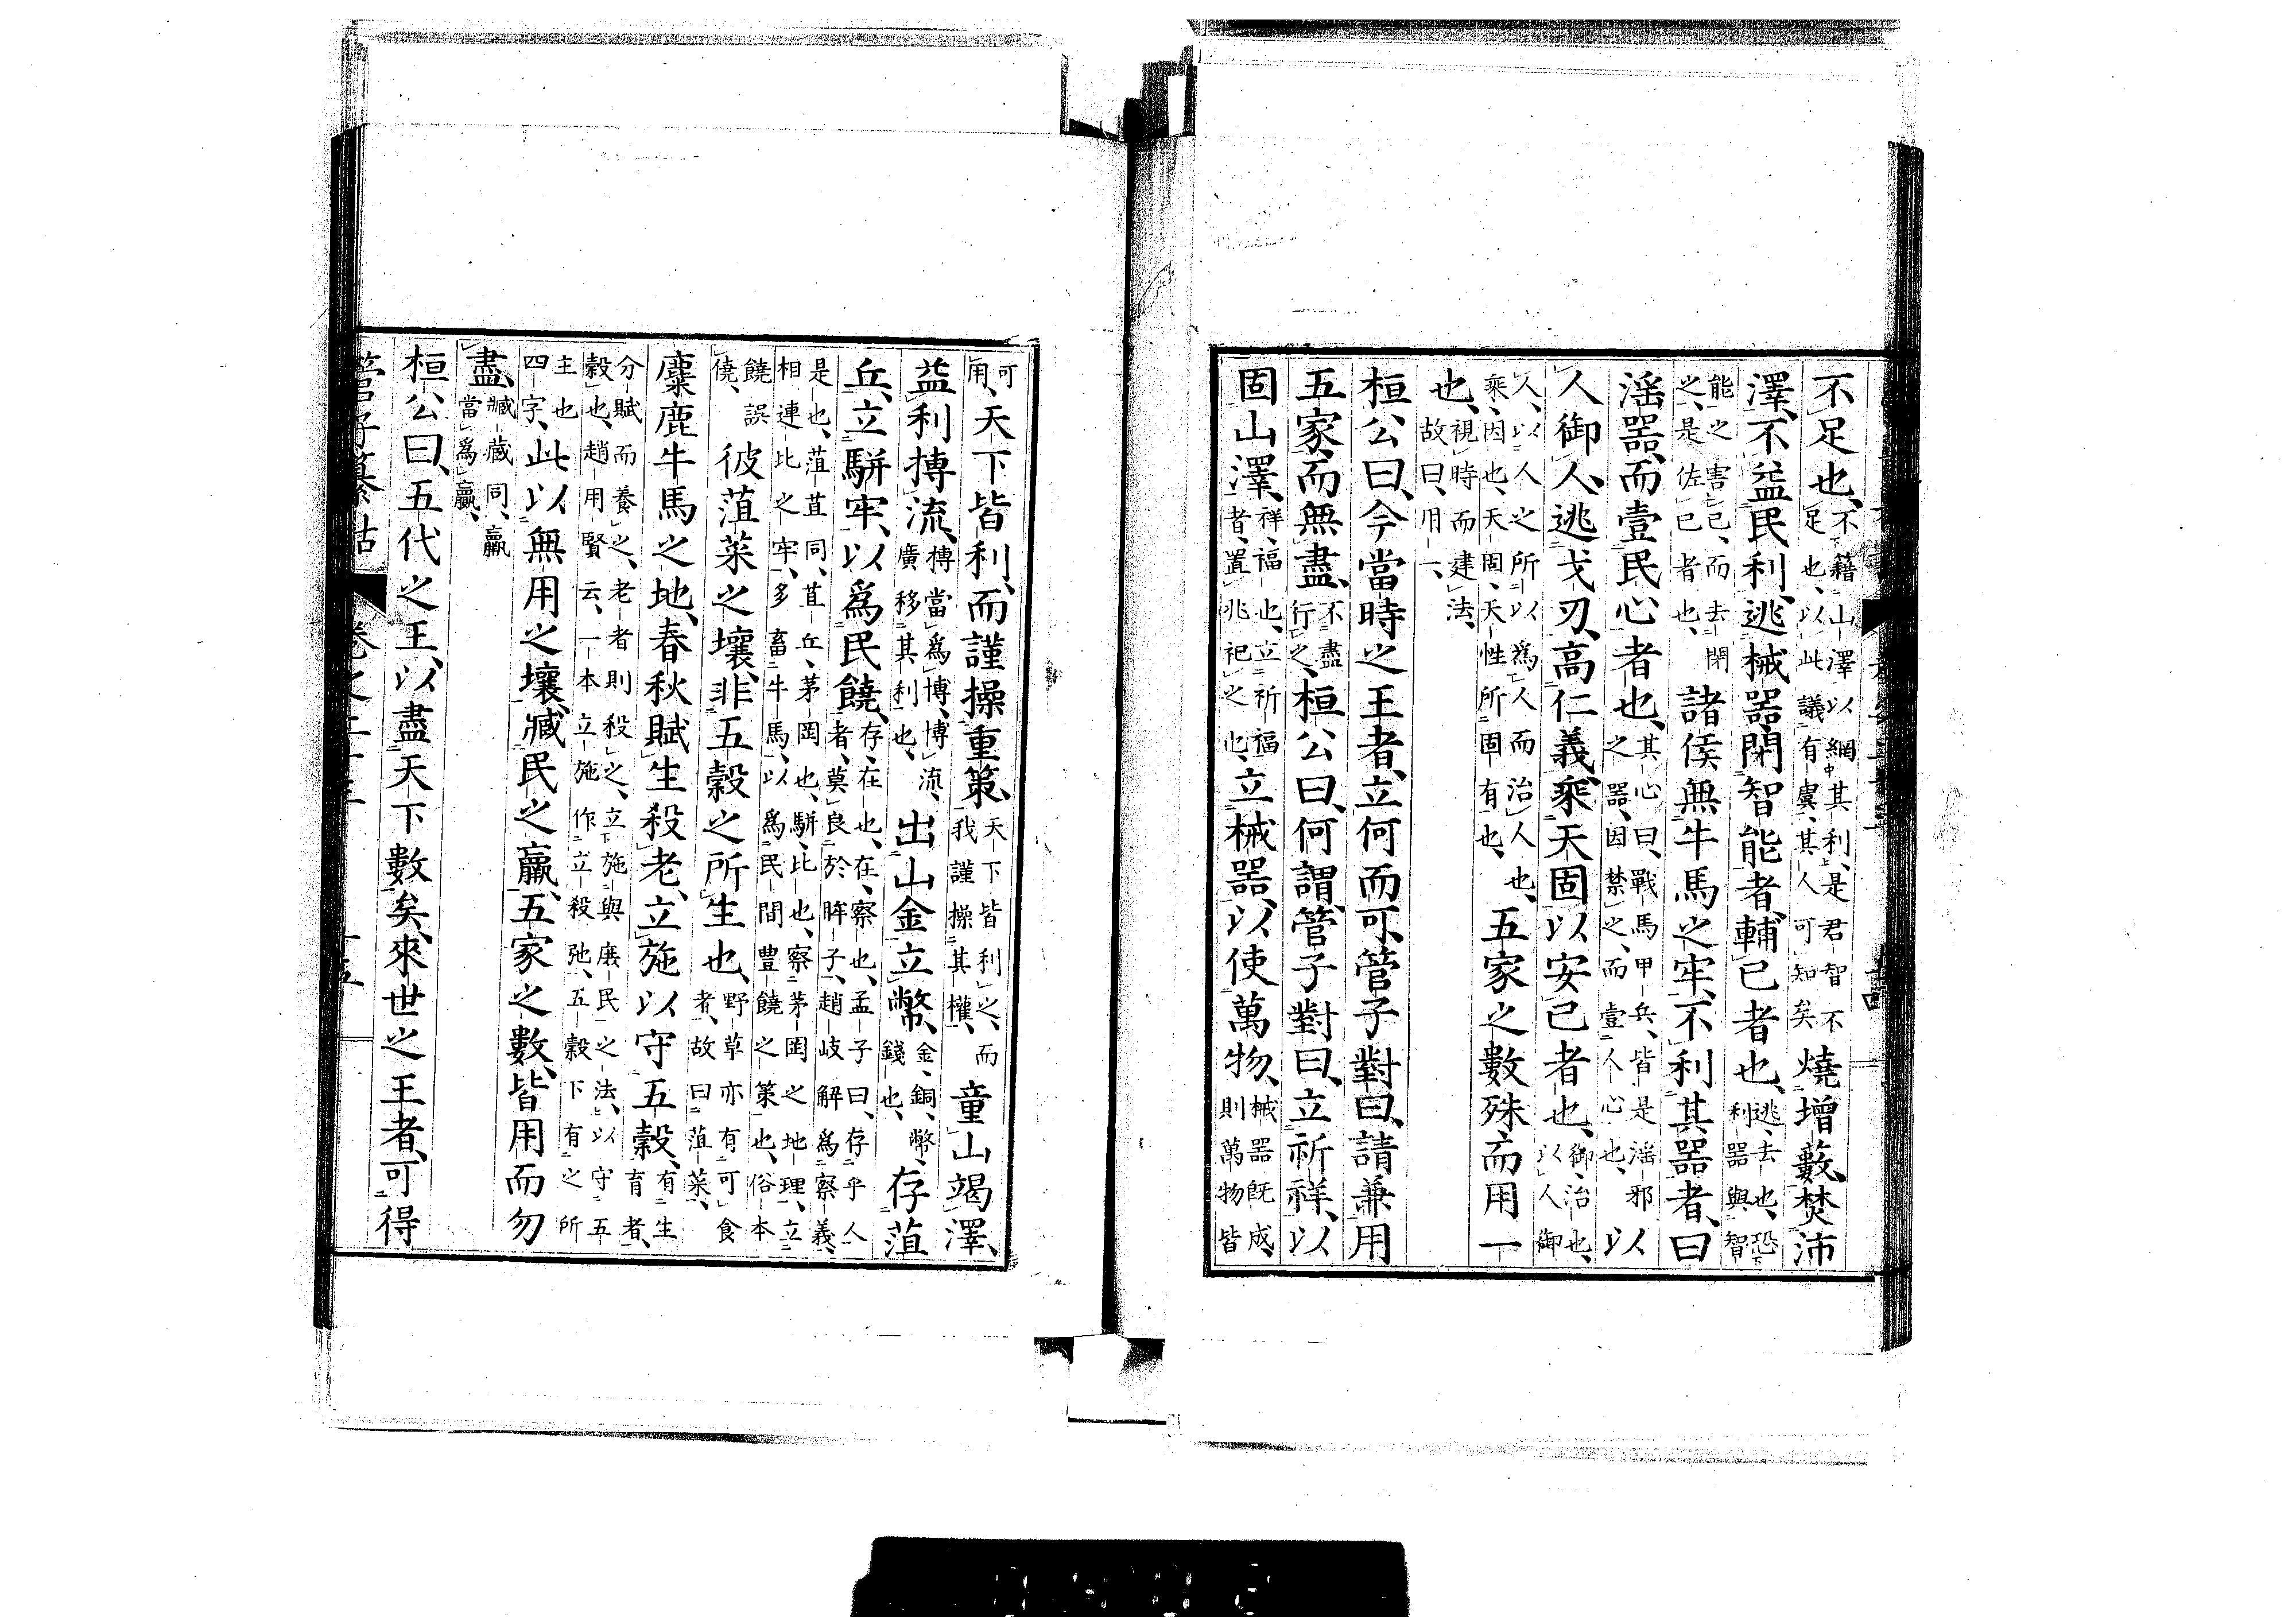 不足也、不籍山澤以網其利、是君智不足也、以此議有虞、其人可知矣燒增藪、焚沛
澤、不益民利、逃械器、閉智能者、輔己者也、逃、去也、恐利器與智
能之害己、而去閉之、是佐己者也、諸侯無牛馬之牢、不利其器者、曰
淫器、而壹民心者也、其心曰、戰馬甲兵、皆是淫邪之器、因禁之、而壹人心也、以
人御人、逃戈刃、高仁義、乘天固以安己者也、御、治也、以人御
人、以人之所以爲人而治人也、乘、因也、天固、天性所固有也、五家之數殊、而用一
也、視時而建法、故曰、用一、
桓公曰、今當時之王者、立何而可、管子對曰、請兼用
五家、而無盡、不盡行之、桓公曰、何謂、管子對曰、立祈祥、以
固山澤、祥、福也、立祈福者、置兆祀之也、立械器、以使萬物、械器既成、則萬物皆
可用、天下皆利、而謹操重策、天下皆利之、而我謹操其權、童山竭澤、
益利摶流、摶當爲博、博流、廣移其利也、出山金立幣、金、銅、幣、錢也、存菹
丘、立駢牢、以爲民饒、存、在也、在、察也、孟子曰、存乎人者、莫良於眸子、趙岐解爲察義、
是也、菹苴同、苴丘、茅罔也、駢、比也、察茅罔之地理、立相連比之牢、多畜牛馬、以爲民間豊饒之策也、俗本
饒誤僥、彼菹萊之壤、非五穀之所生也、野草亦有可食者、故曰菹萊、
麋鹿牛馬之地、春秋賦生殺老、立施以守五穀、有生育者、
分賦而養之、老者則殺之、立施與展民之法、以守五穀也、趙用賢云、一本立施作立殺弛、五穀下有之所
主也四字、此以無用之壤、臧民之羸、五家之數、皆用而勿
盡、臧藏同、羸當爲贏、
桓公曰、五代之王、以盡天下數矣、來世之王者、可得
管子纂詁　卷之二十三　十五